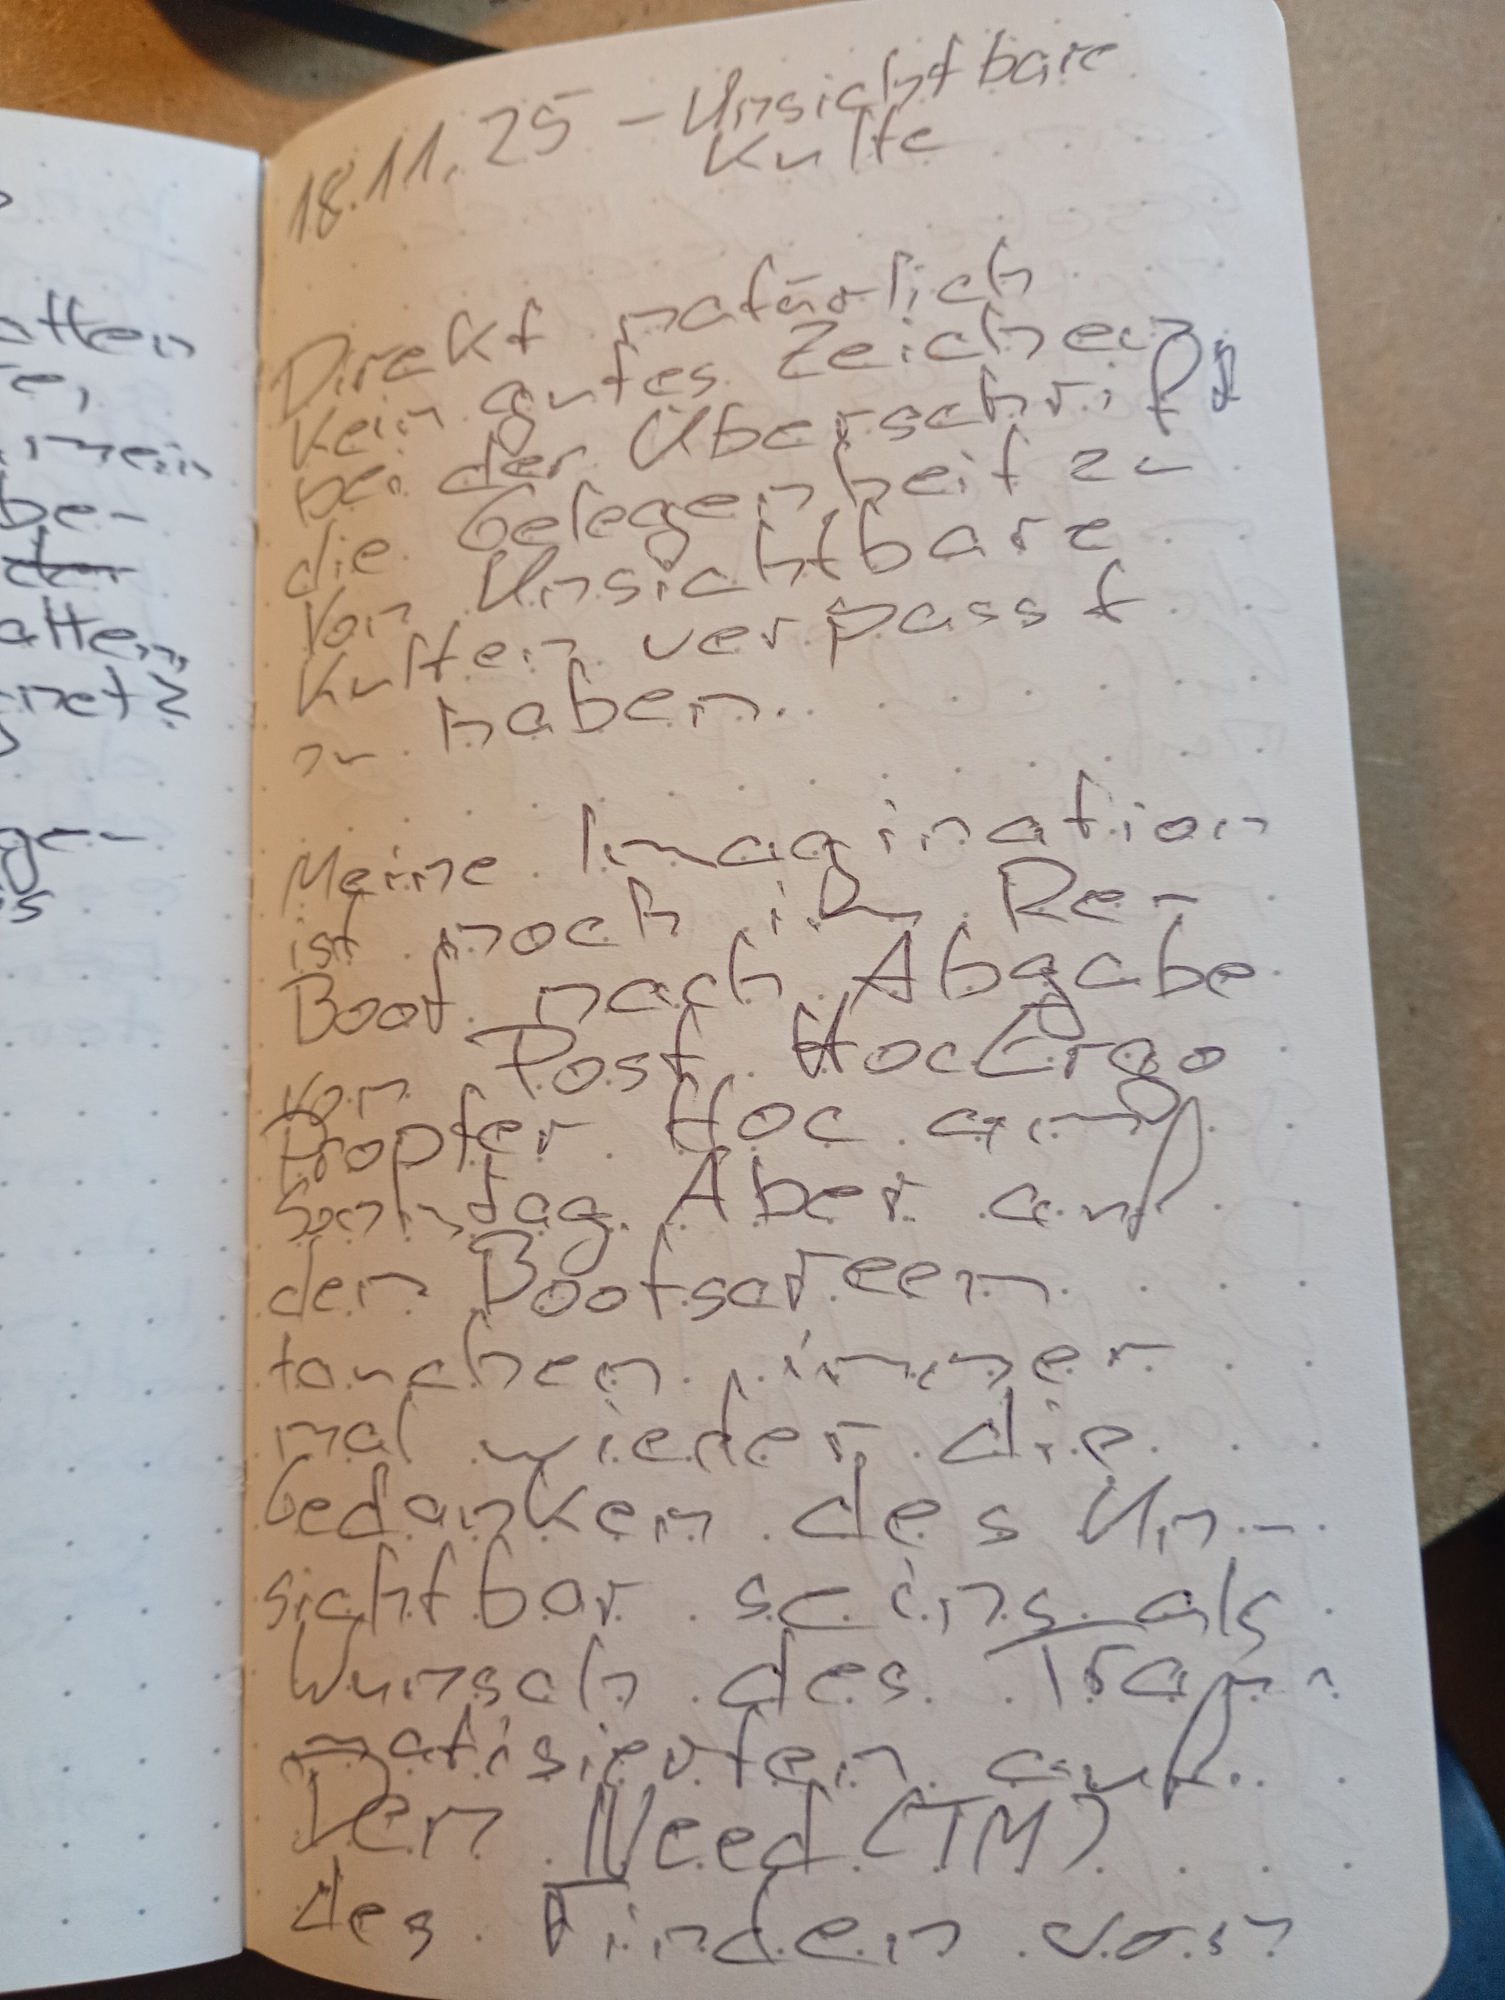 atten
re,
mein
be-
der
atten,
net?
ge-
s
18.11.25 - Unsichtbare
Kulte
Direkt natürlich
kein gutes Zeichen
bei der Überschrift
die Gelegenheit zu
Von Unsichtbare
Kulten verpasst
zu haben.
Meine Imagination
ist noch im Re-
Boot nach Abgabe
von Post Hoc Ergo
Propter Hoc am
Sonntag. Aber auf
den Bootscreen
tauchen immer
mal wieder die
Gedanken des Un-
sichtbar seins als
Wunsch des Trau-
matisierten auf.
Den Need (TM)
des Finden von